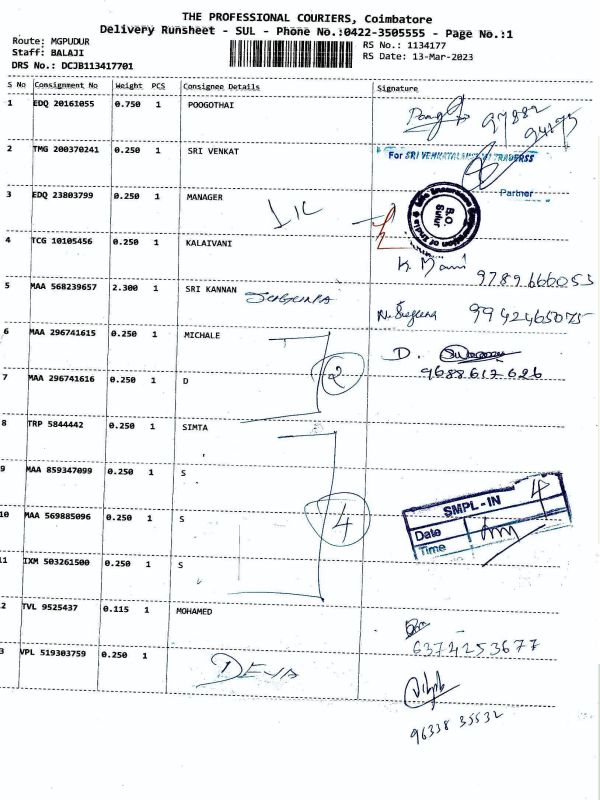 THE PROFESSIONAL COURIERS, Coimbatore
Delivery Runsheet - SUL - Phone No.:0422-3505555 - Page No.:1
Route: MGPUDUR
Staff: BALAJI
DRS No.: DCJB113417701
RS No.: 1134177
RS Date: 13-Mar-2023
S No Consignment No Weight PCS Consignee Details Signature
1 EDQ 20161055 0.750 1 POOGOTHAI
97882
94195
2 TMG 200370241 0.250 1 SRI VENKAT
For SRI VENKATALAKSHMI TRADERSS
Partner
3 EDQ 23803799 0.250 1 MANAGER LIC
Life Insurance Corporation of India
B.O. Sulur
4 TCG 10105456 0.250 1 KALAIVANI
K. Mani
9789666053
5 MAA 568239657 2.300 1 SRI KANNAN
9942465075
6 MAA 296741615 0.250 1 MICHALE
D.
9688612626
2
7 MAA 296741616 0.250 1 D
8 TRP 5844442 0.250 1 SIMTA
9 MAA 859347099 0.250 1 S
SMPL-IN 4
Date
Time
10 MAA 569885096 0.250 1 S
4
11 IXM 503261500 0.250 1 S
2 TVL 9525437 0.115 1 MOHAMED
6374253677
3 VPL 519303759 0.250 1 DEVA
96338 35532